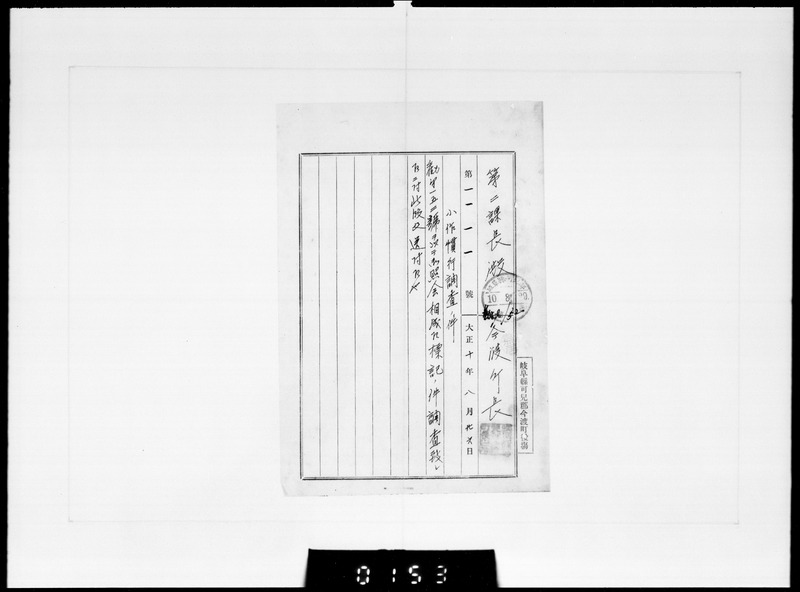 第二課長殿 今渡町長
第一一一一號 大正十年八月廿六日
小作慣行調査ノ件
勸第一五二號ヲ以テ御照会相成候標記ノ件調査致シ
候ニ付此段及送付候也
岐阜縣可兒郡今渡町役場
10 8
0153